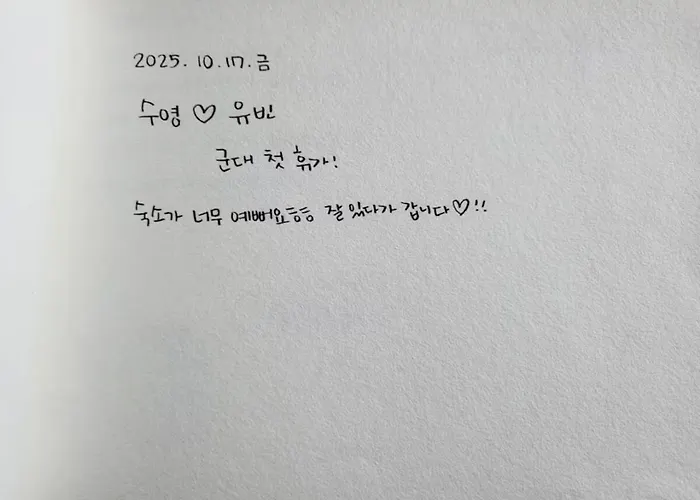 2025. 10. 17. 금
수영 ♡ 유빈
군대 첫 휴가!
숙소가 너무 예뻐요흠흠 잘 있다가 갑니다♡!!